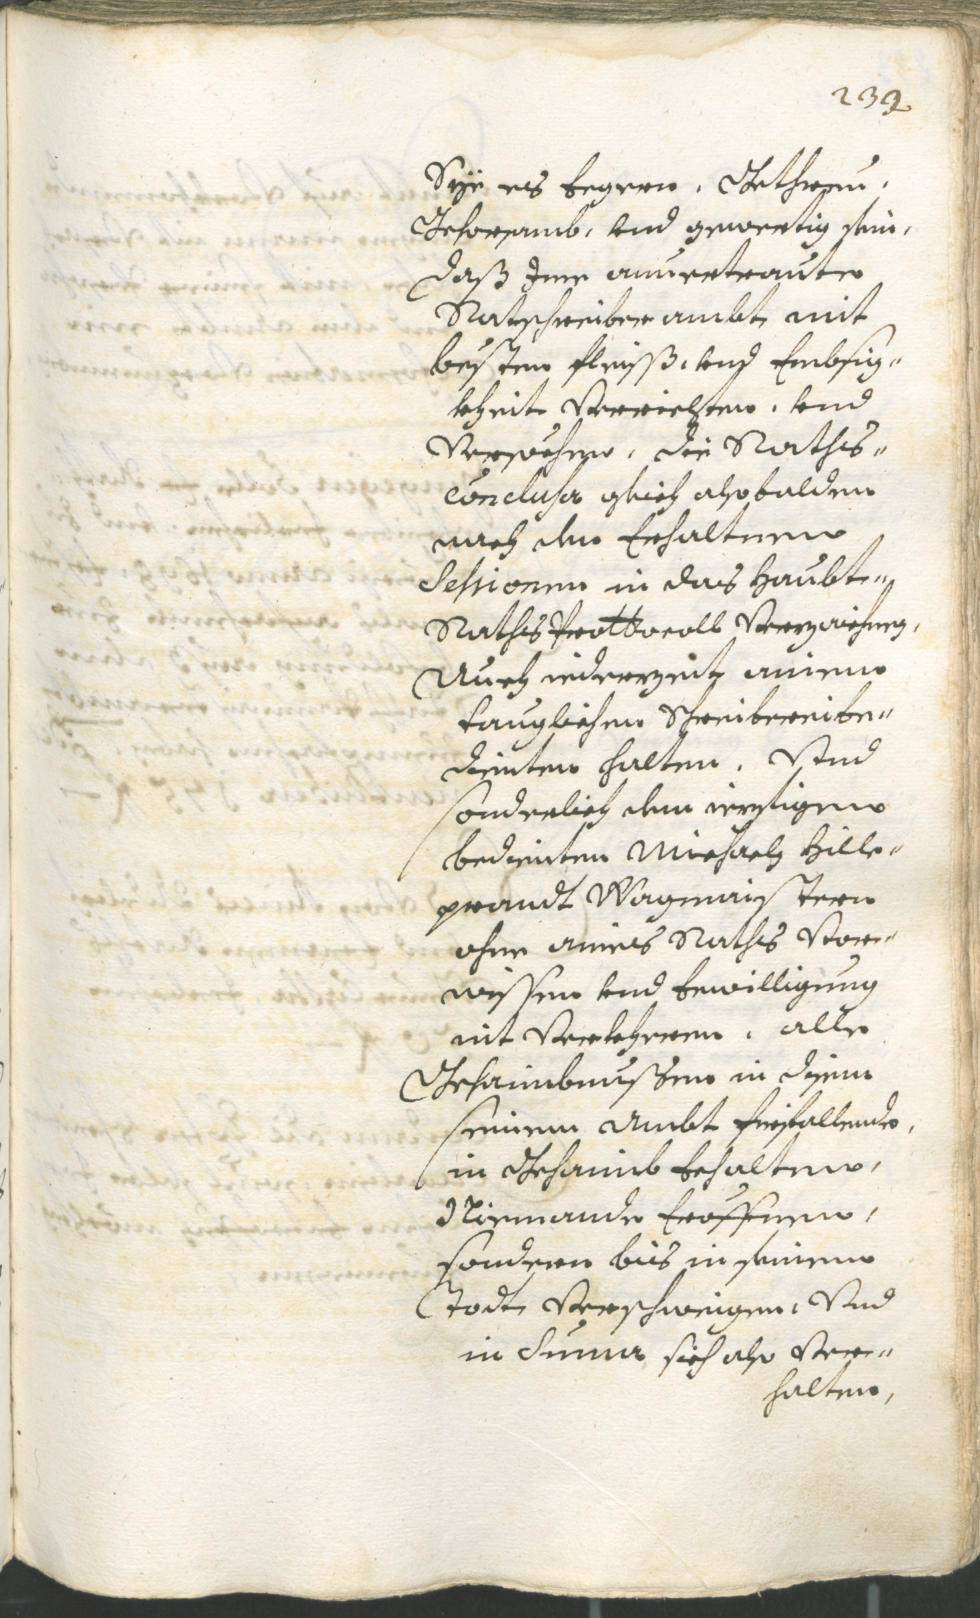 232
Sÿe es begern, Gethreu,
Gehorsamb, und gewerttig sein,
Daß Ime anvertrautte
Statschreiber ambt, mit
besten fleiss, und Embsig-
kheit Verrichten, und
Versehen, die Raths-
conclusa gleich alsbalden
nach den Erhaltnen
Sessionen in das Haubt-
Raths Prottocoll Verzaichnen,
Auch iederzeit ainen
tauglichen Schreibereibe-
dienten halten, Und
sonderlich den ieztigen
bedienten Michaeln Hille-
prandt Wagmaistern
ohne aines Raths Vor-
wissen und bewilligung
nit Verkehren, alle
Gehaimbnussen in disem
seinem Ambt firfallende,
in Gehaimb behalten,
Niemande Eröffnen,
sondern bis in seinen
Todt, Verschweigen, Und
in Summa sich also Ver-
halten,